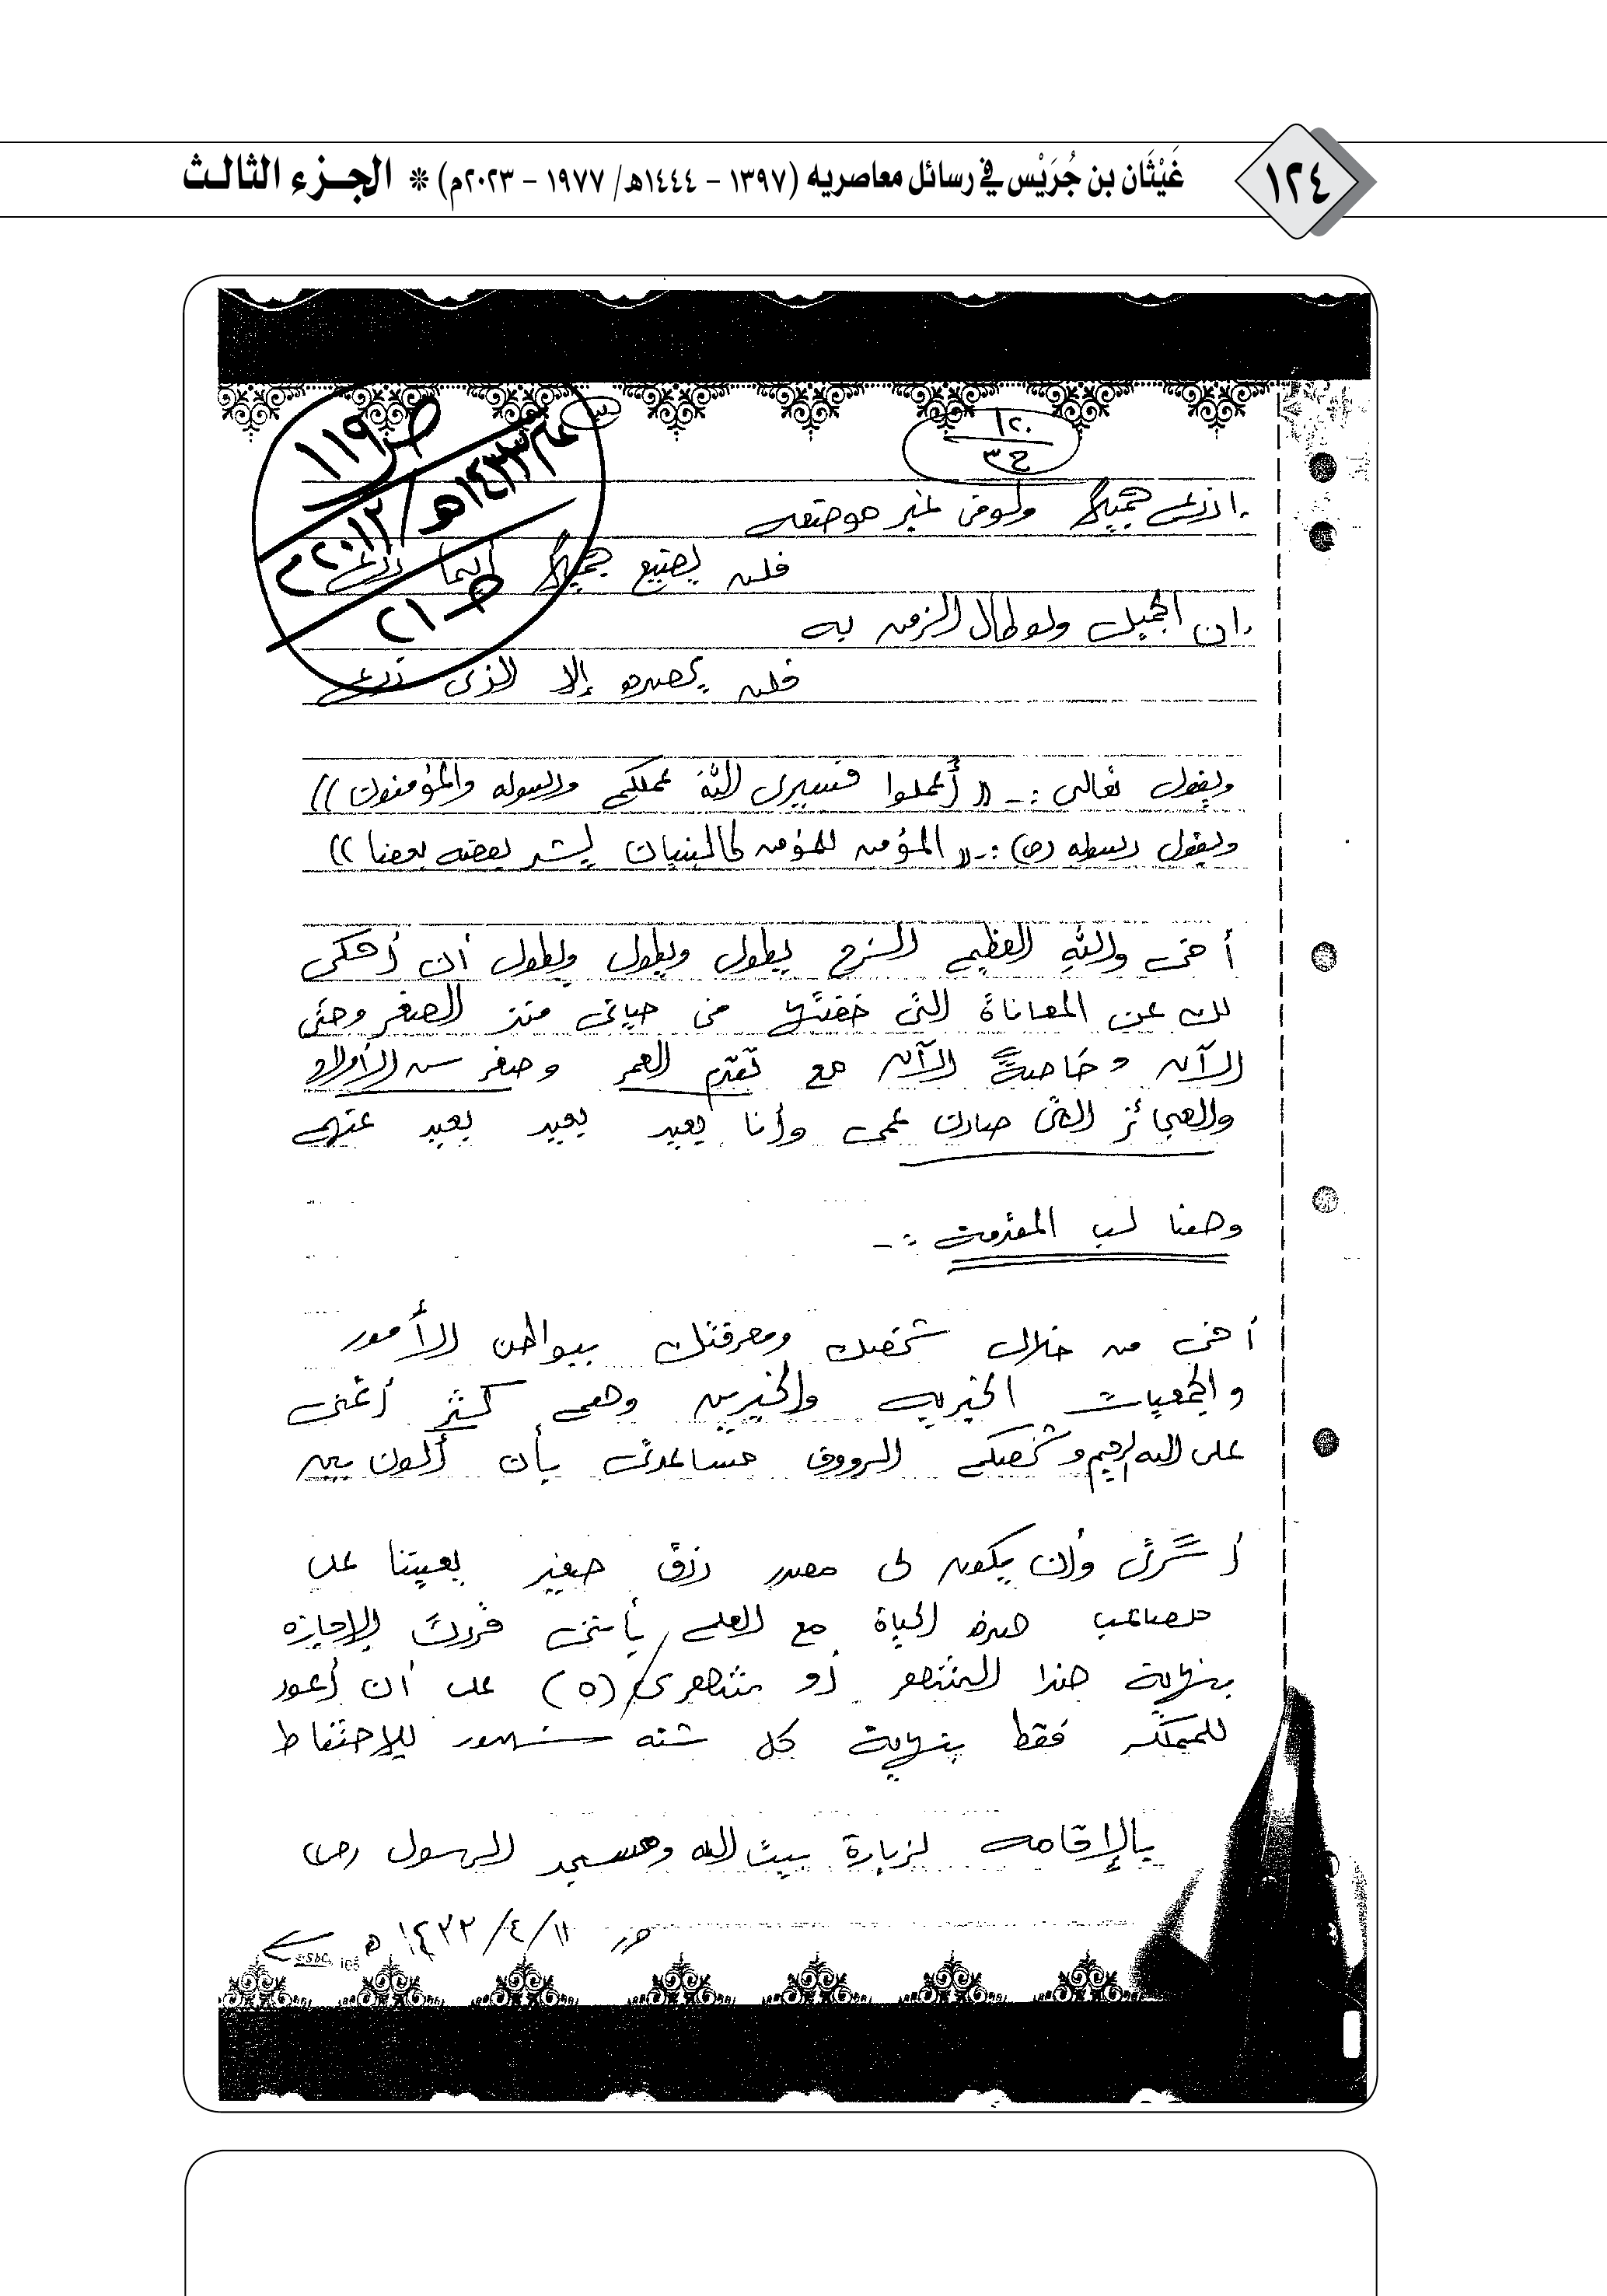 ١٢٤
غَيْثَان بن جُرَيْس في رسائل معاصريه (١٣٩٧ - ١٤٤٤هـ/ ١٩٧٧ - ٢٠٢٣م) * الجـزء الثالـث
ص ١١٩
عام ١٤٣٣هـ/٢٠١٢م
ص ٢١
٣
١٢٠
ج ٣
ازرع جميلاً ولو في غير موضعه
فلن يضيع جميلاً أينما زرع
إن الجميل ولو طال الزمن به
فلن يحصده إلا الذي زرع
ويقول تعالى :- (( أعملوا فسيرى الله عملكم ورسوله والمؤمنون ))
ويقول رسوله (ص) :- (( المؤمن للمؤمن كالبنيان يشد بعضه بعضا ))
أخي والله العظيم الشرح يطول ويطول ويطول أن أحكي
لك عن المعاناة التي خضتها في حياتي منذ الصغر وحتى
الآن وخاصةً الآن مع تقدم العمر وصغر سن الأولاد
والعجائز التي صارت عمى وأنا بعيد بعيد بعيد عنهم
وهنا لب المقدمة :-
أخي من خلال شخصك ومعرفتك ببواطن الأمور
والجمعيات الخيريه والخيرين وهم كثر أتمنى
على الله الرحيم وشخصكم الرؤوف مساعدتي بأن أكون بين
أسرتي وأن يكون لي مصدر رزق صغير يعيننا على
مصاعب هذه الحياة مع العلم بأنني قررت الإجازه
بنهاية هذا الشهر أو شهري (٥) على أن أعود
للمملكه فقط بنهاية كل سته شهور للإحتفاظ
بالإقامه لزيارة بيت الله ومسجد الرسول (ص)
حرر ١١/٤/١٤٣٣ هـ